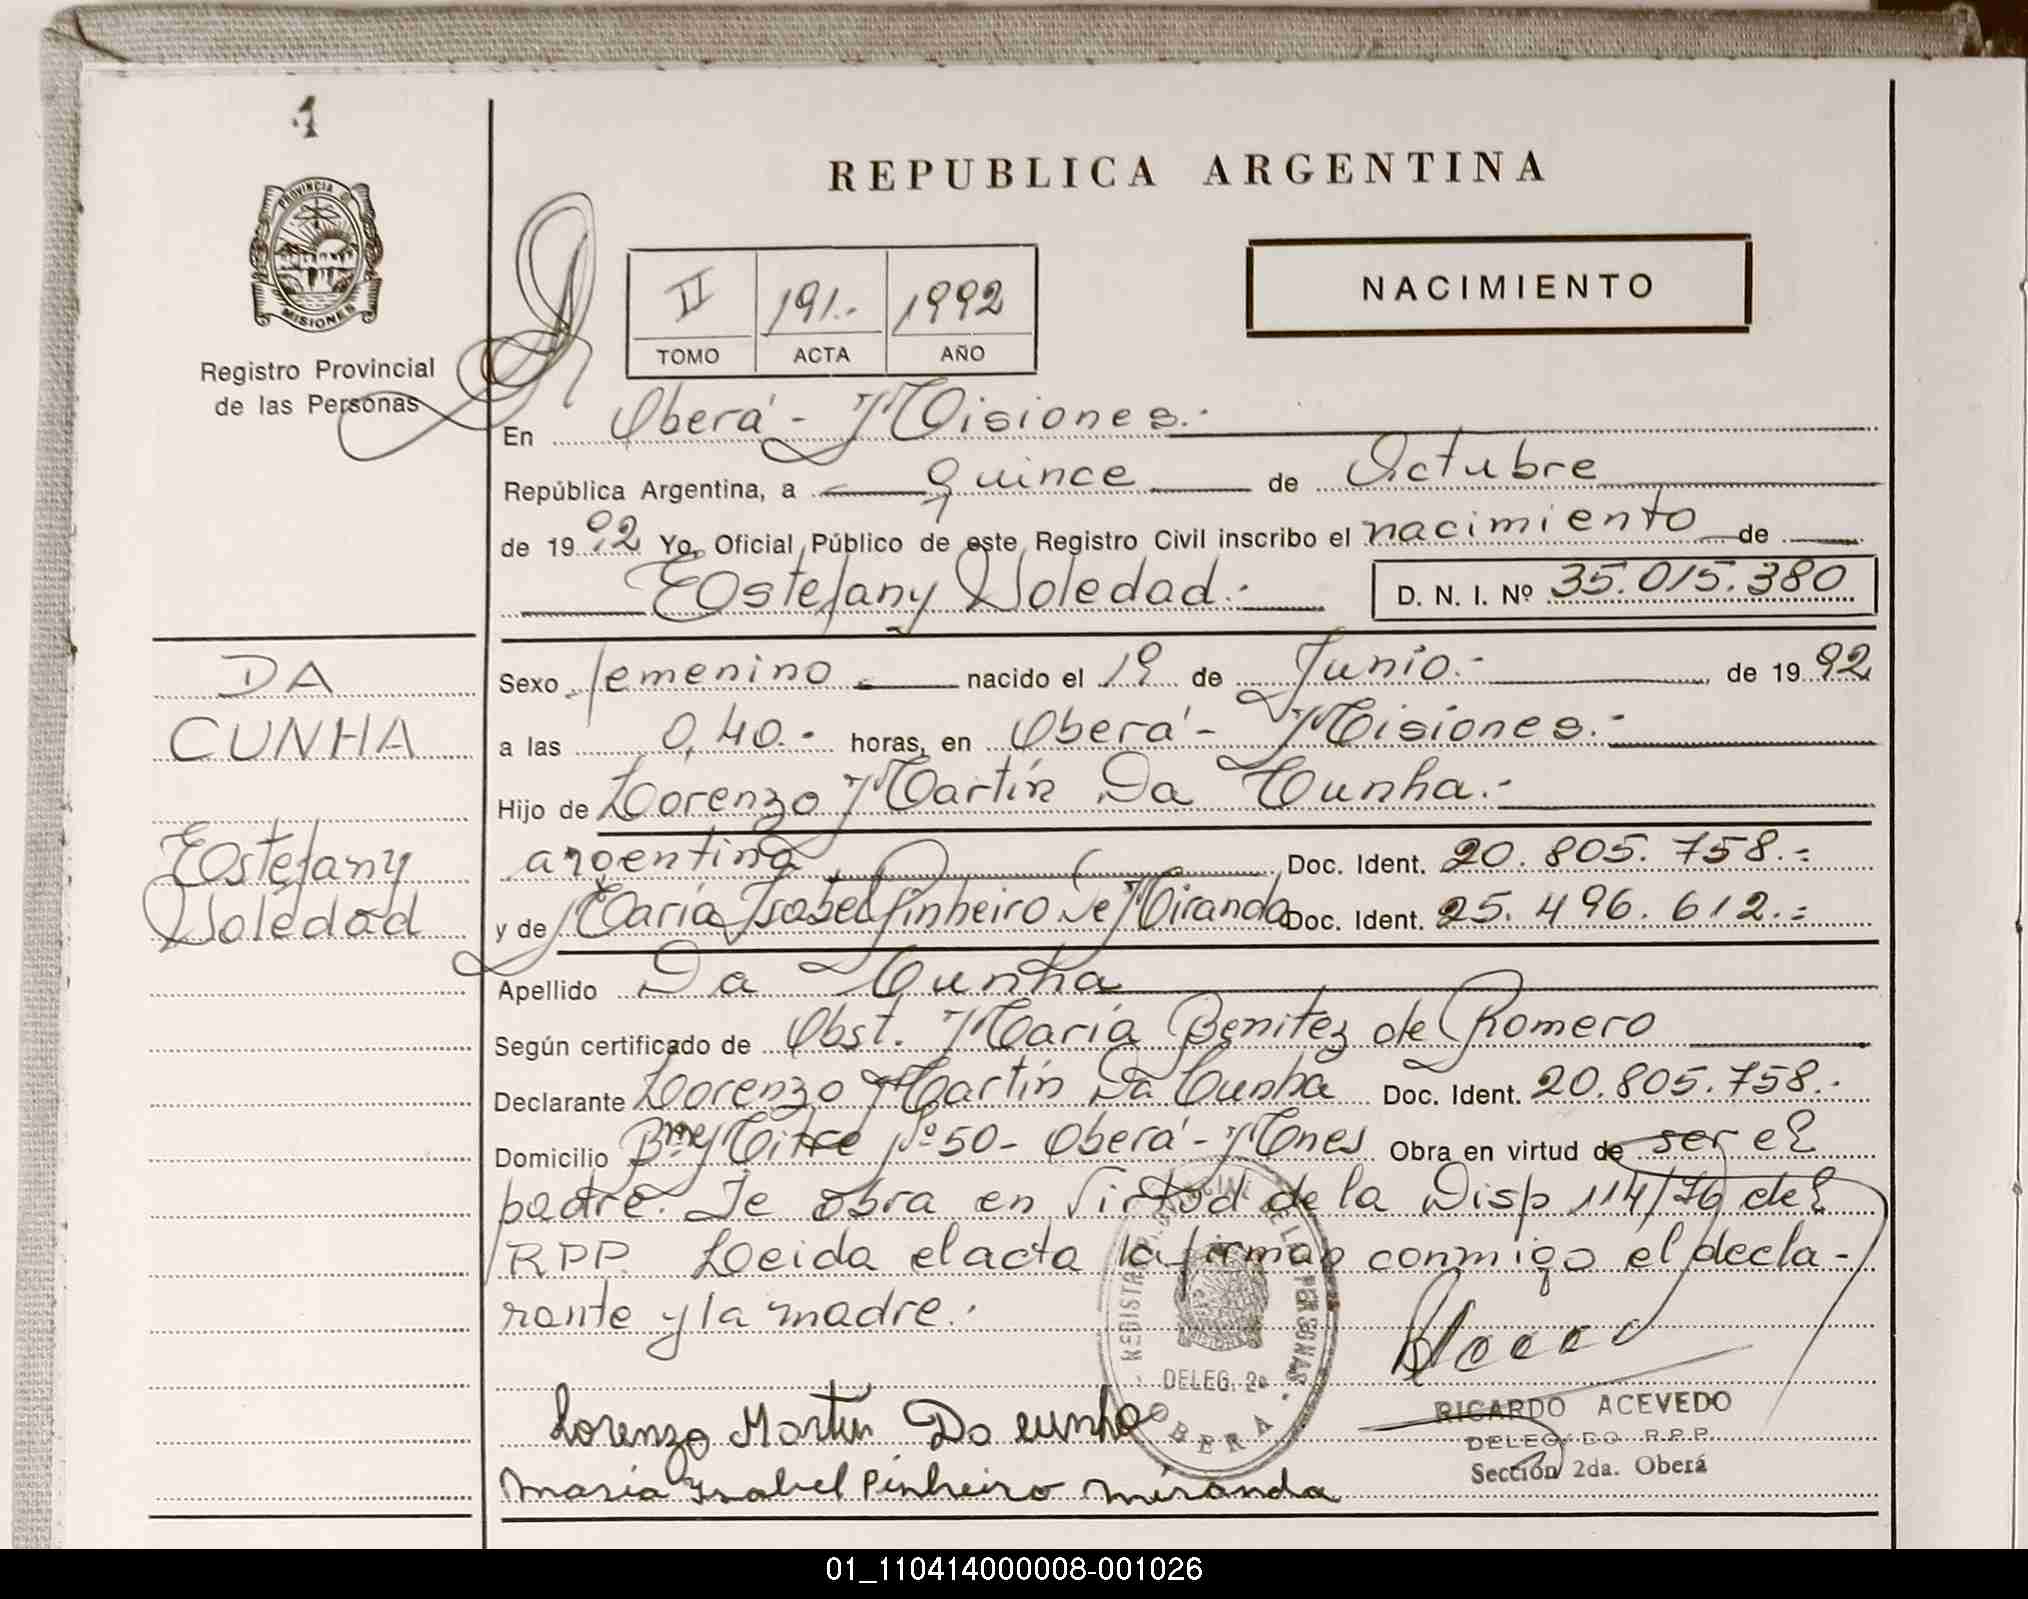 1
REPUBLICA ARGENTINA
PROVINCIA D
MISIONES
Registro Provincial
de las Personas
II 191.- 1992
TOMO ACTA AÑO
NACIMIENTO
En Oberá - Misiones.-
República Argentina, a quince de Octubre
de 1992 Yo, Oficial Público de este Registro Civil inscribo el nacimiento de
Estefany Soledad.- D. N. I. Nº 35.015.380
DA
CUNHA
Estefany
Soledad
Sexo femenino nacido el 19 de Junio.- de 1992
a las 0,40.- horas, en Oberá - Misiones.-
Hijo de Lorenzo Martín Da Cunha.-
argentina Doc. Ident. 20.805.758.-
y de María Isabel Pinheiro De Miranda Doc. Ident. 25.496.612.-
Apellido Da Cunha
Según certificado de Obst. María Benitez de Romero
Declarante Lorenzo Martín Da Cunha Doc. Ident. 20.805.758.-
Domicilio Bmé Mitre Nº 50 - Oberá - Mnes Obra en virtud de ser el
padre. Se obra en Virtud de la Disp 114/76 del
RPP. Leida el acta la firman conmigo el decla-
rante y la madre.
REGISTRO PROVINCIAL DE LAS PERSONAS
DELEG. 2a
OBERA
Lorenzo Martin Da cunha
Maria Isabel Pinheiro miranda
RICARDO ACEVEDO
DELEGADO R.P.P.
Sección 2da. Oberá
01_110414000008-001026